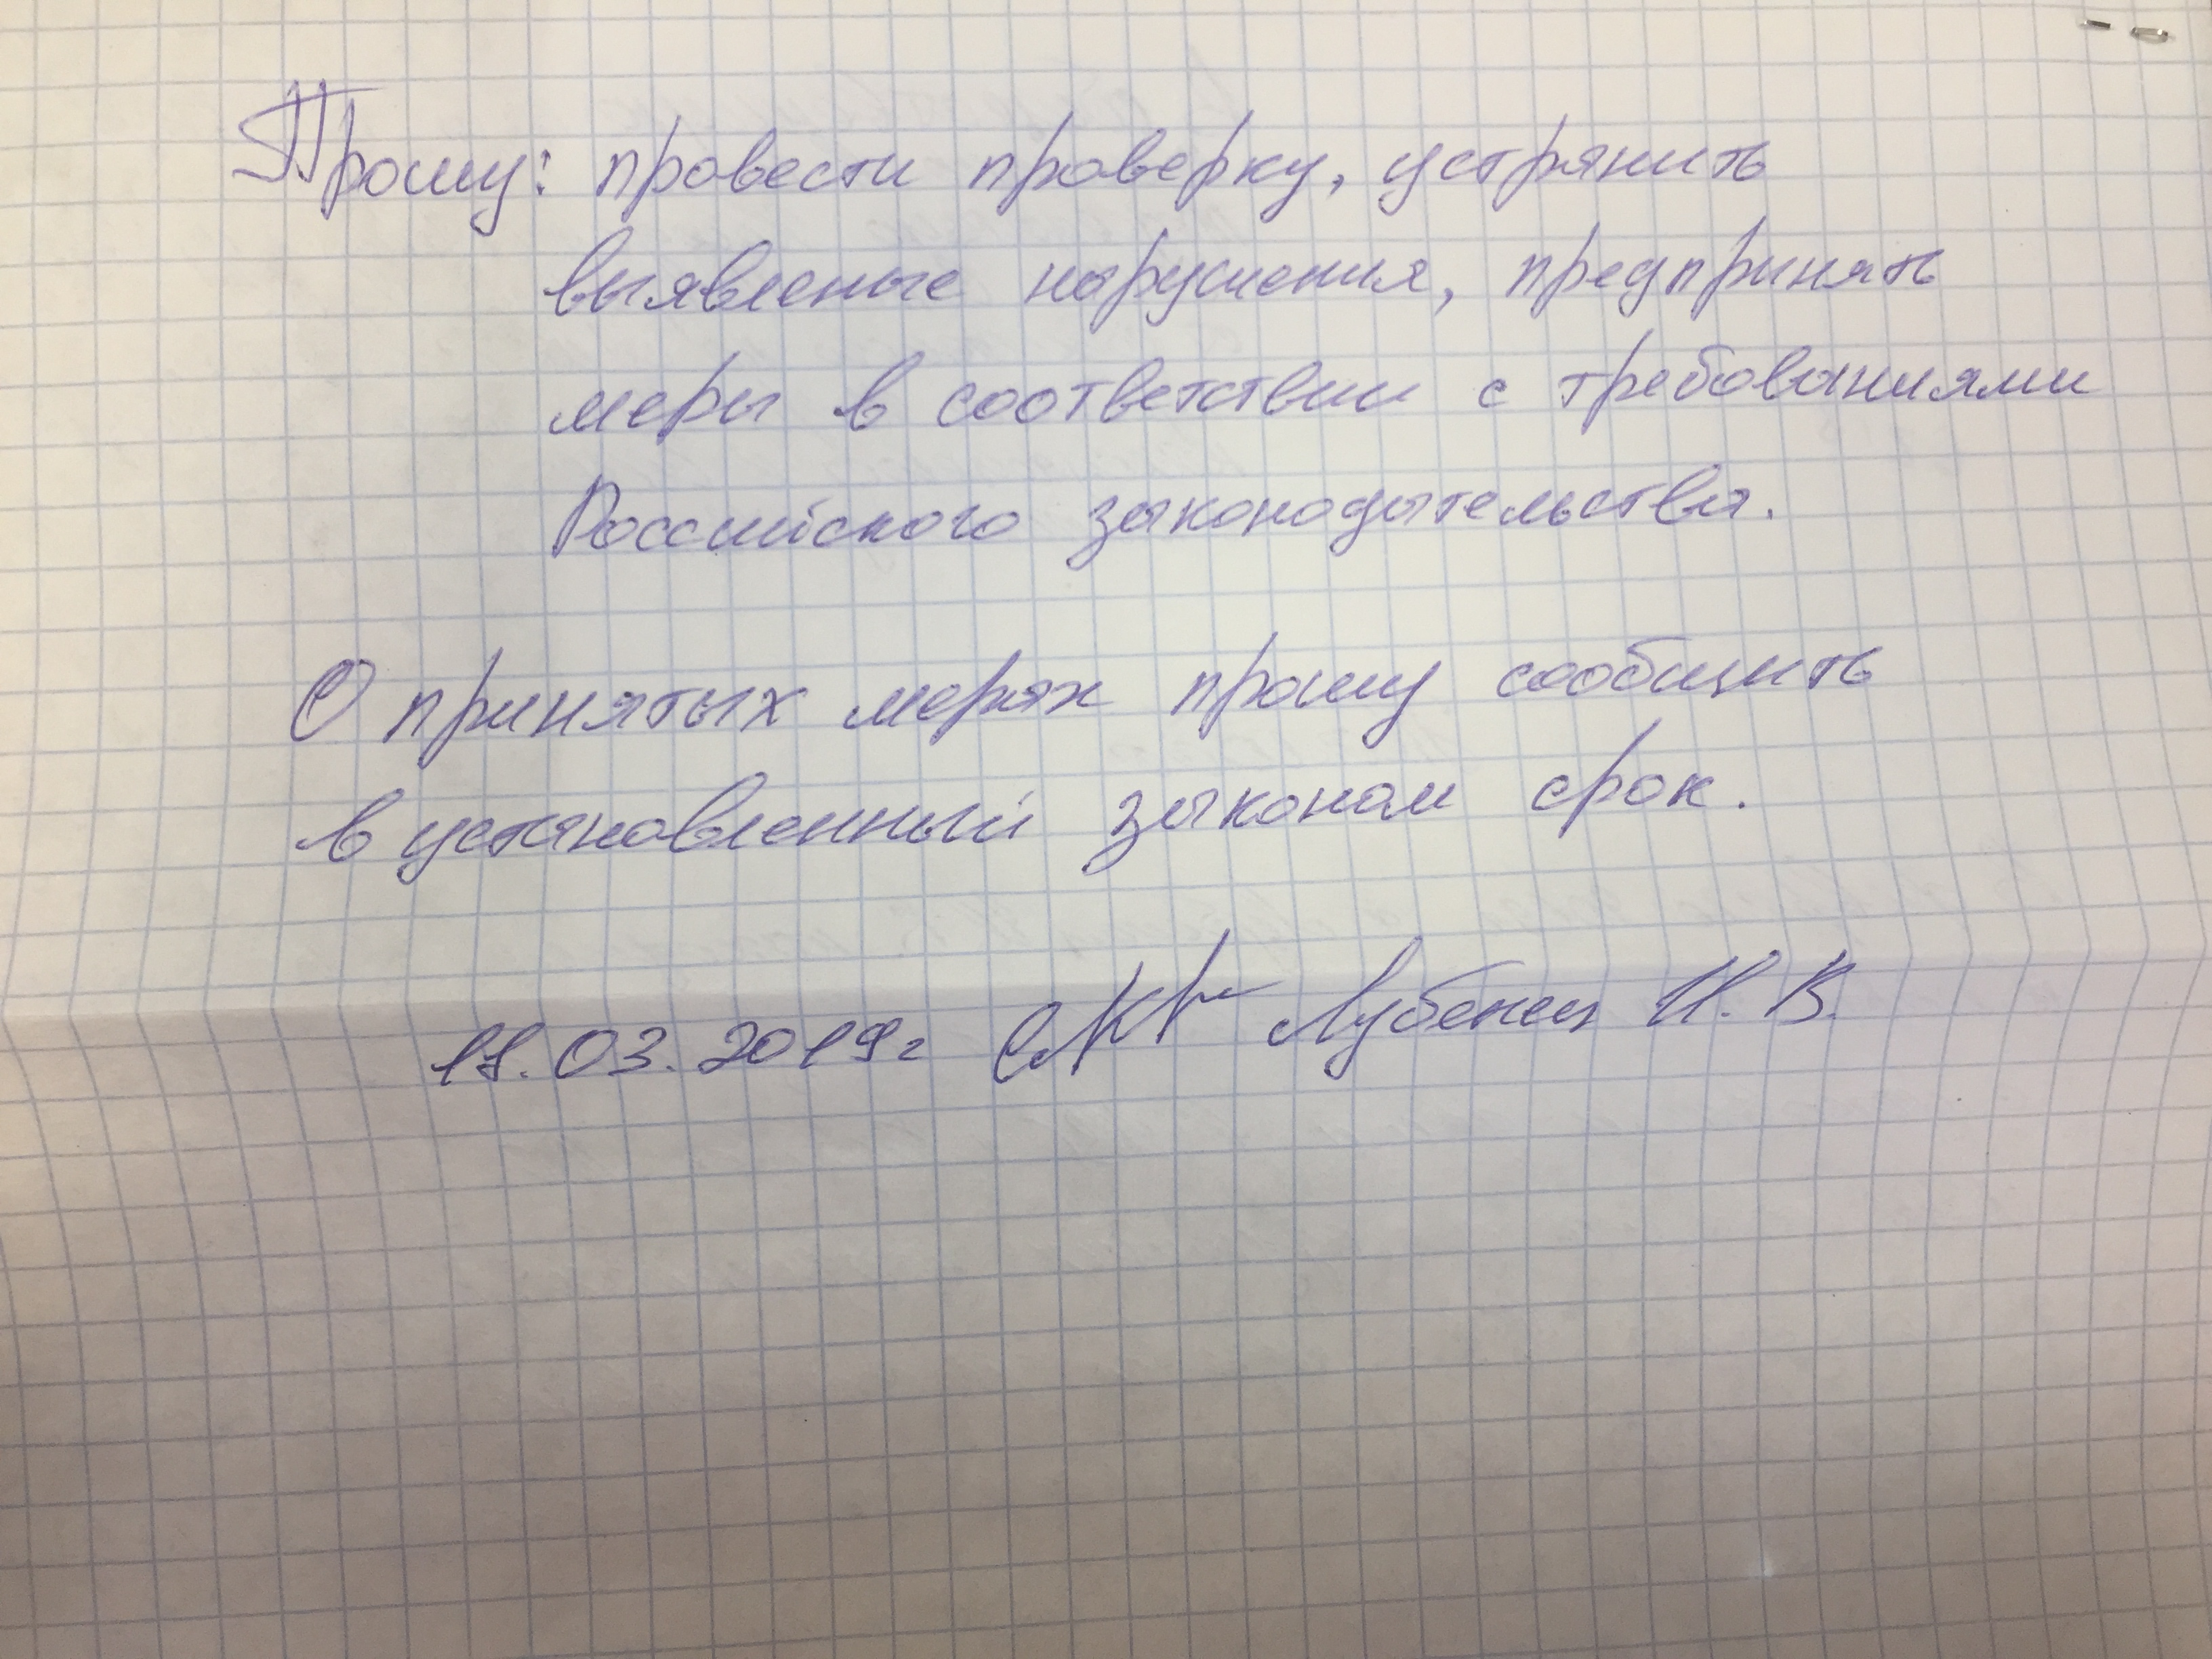 Прошу: провести проверку, устранить
выявленные нарушения, предпринять
меры в соответствии с требованиями
Российского законодательства.
О принятых мерах прошу сообщить
в установленный законом срок.
.03.2019г И. В.